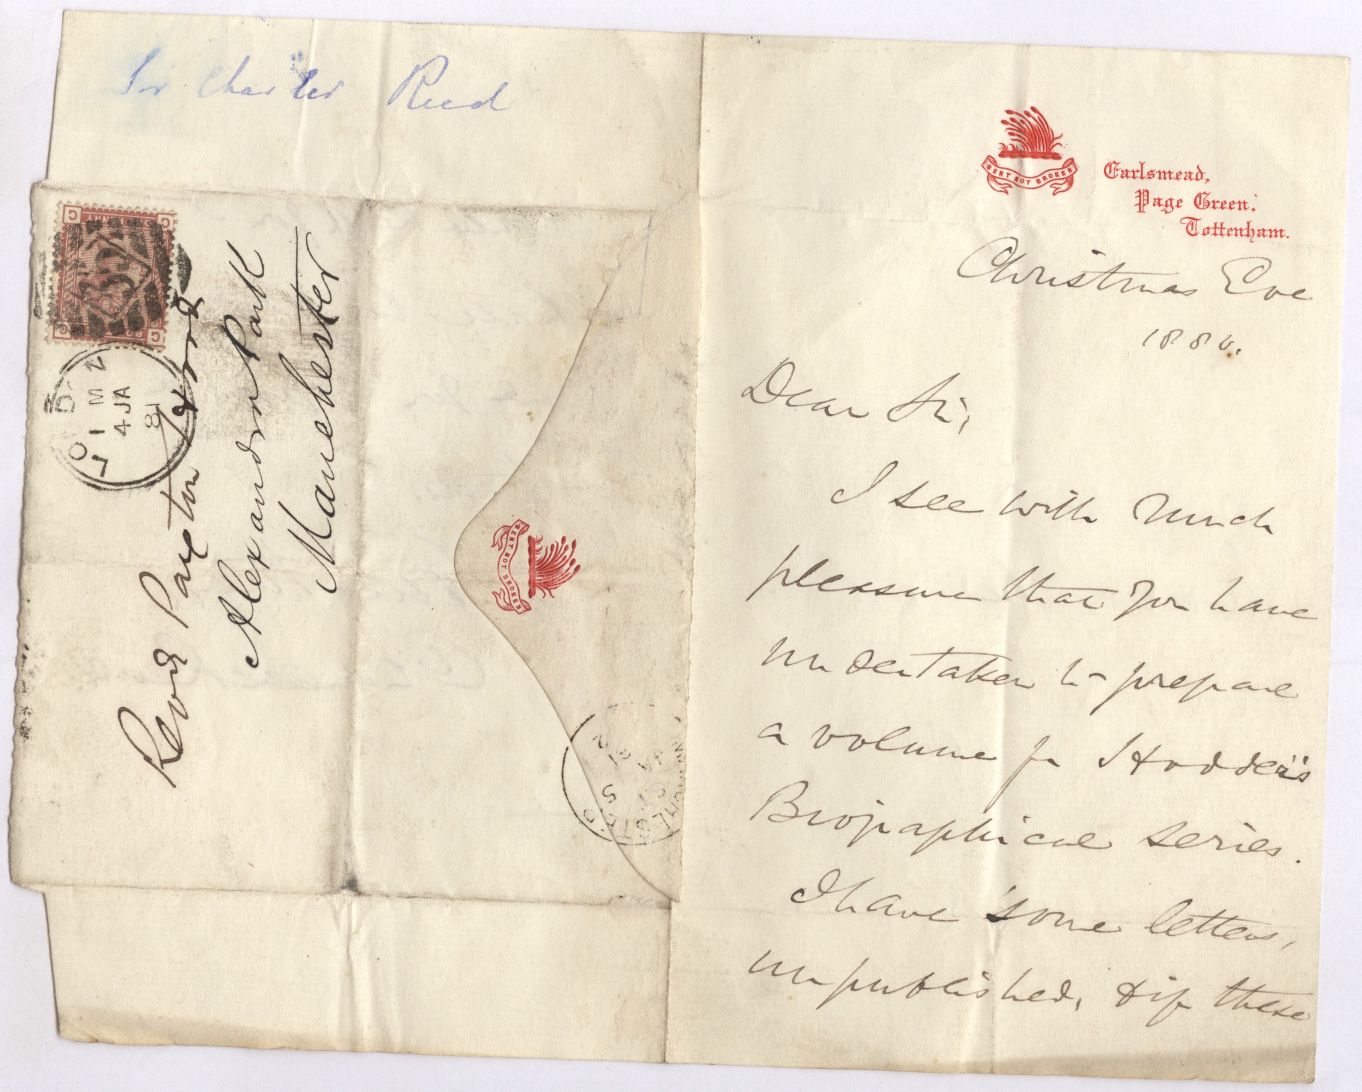 Sir Charles Reed
C C
C C
LONDON
1 M W
4 JA
81
Revd Paxton Hood
Alexandra Park
Manchester
BENT NOT BROKEN
BENT NOT BROKEN
Earlsmead,
Page Green,
Tottenham.
Christmas Eve
1880.
Dear Sir,
I see with much
pleasure that you have
undertaken to prepare
a volume for Hodder's
Biographical series.
I have some letters,
unpublished, & if these